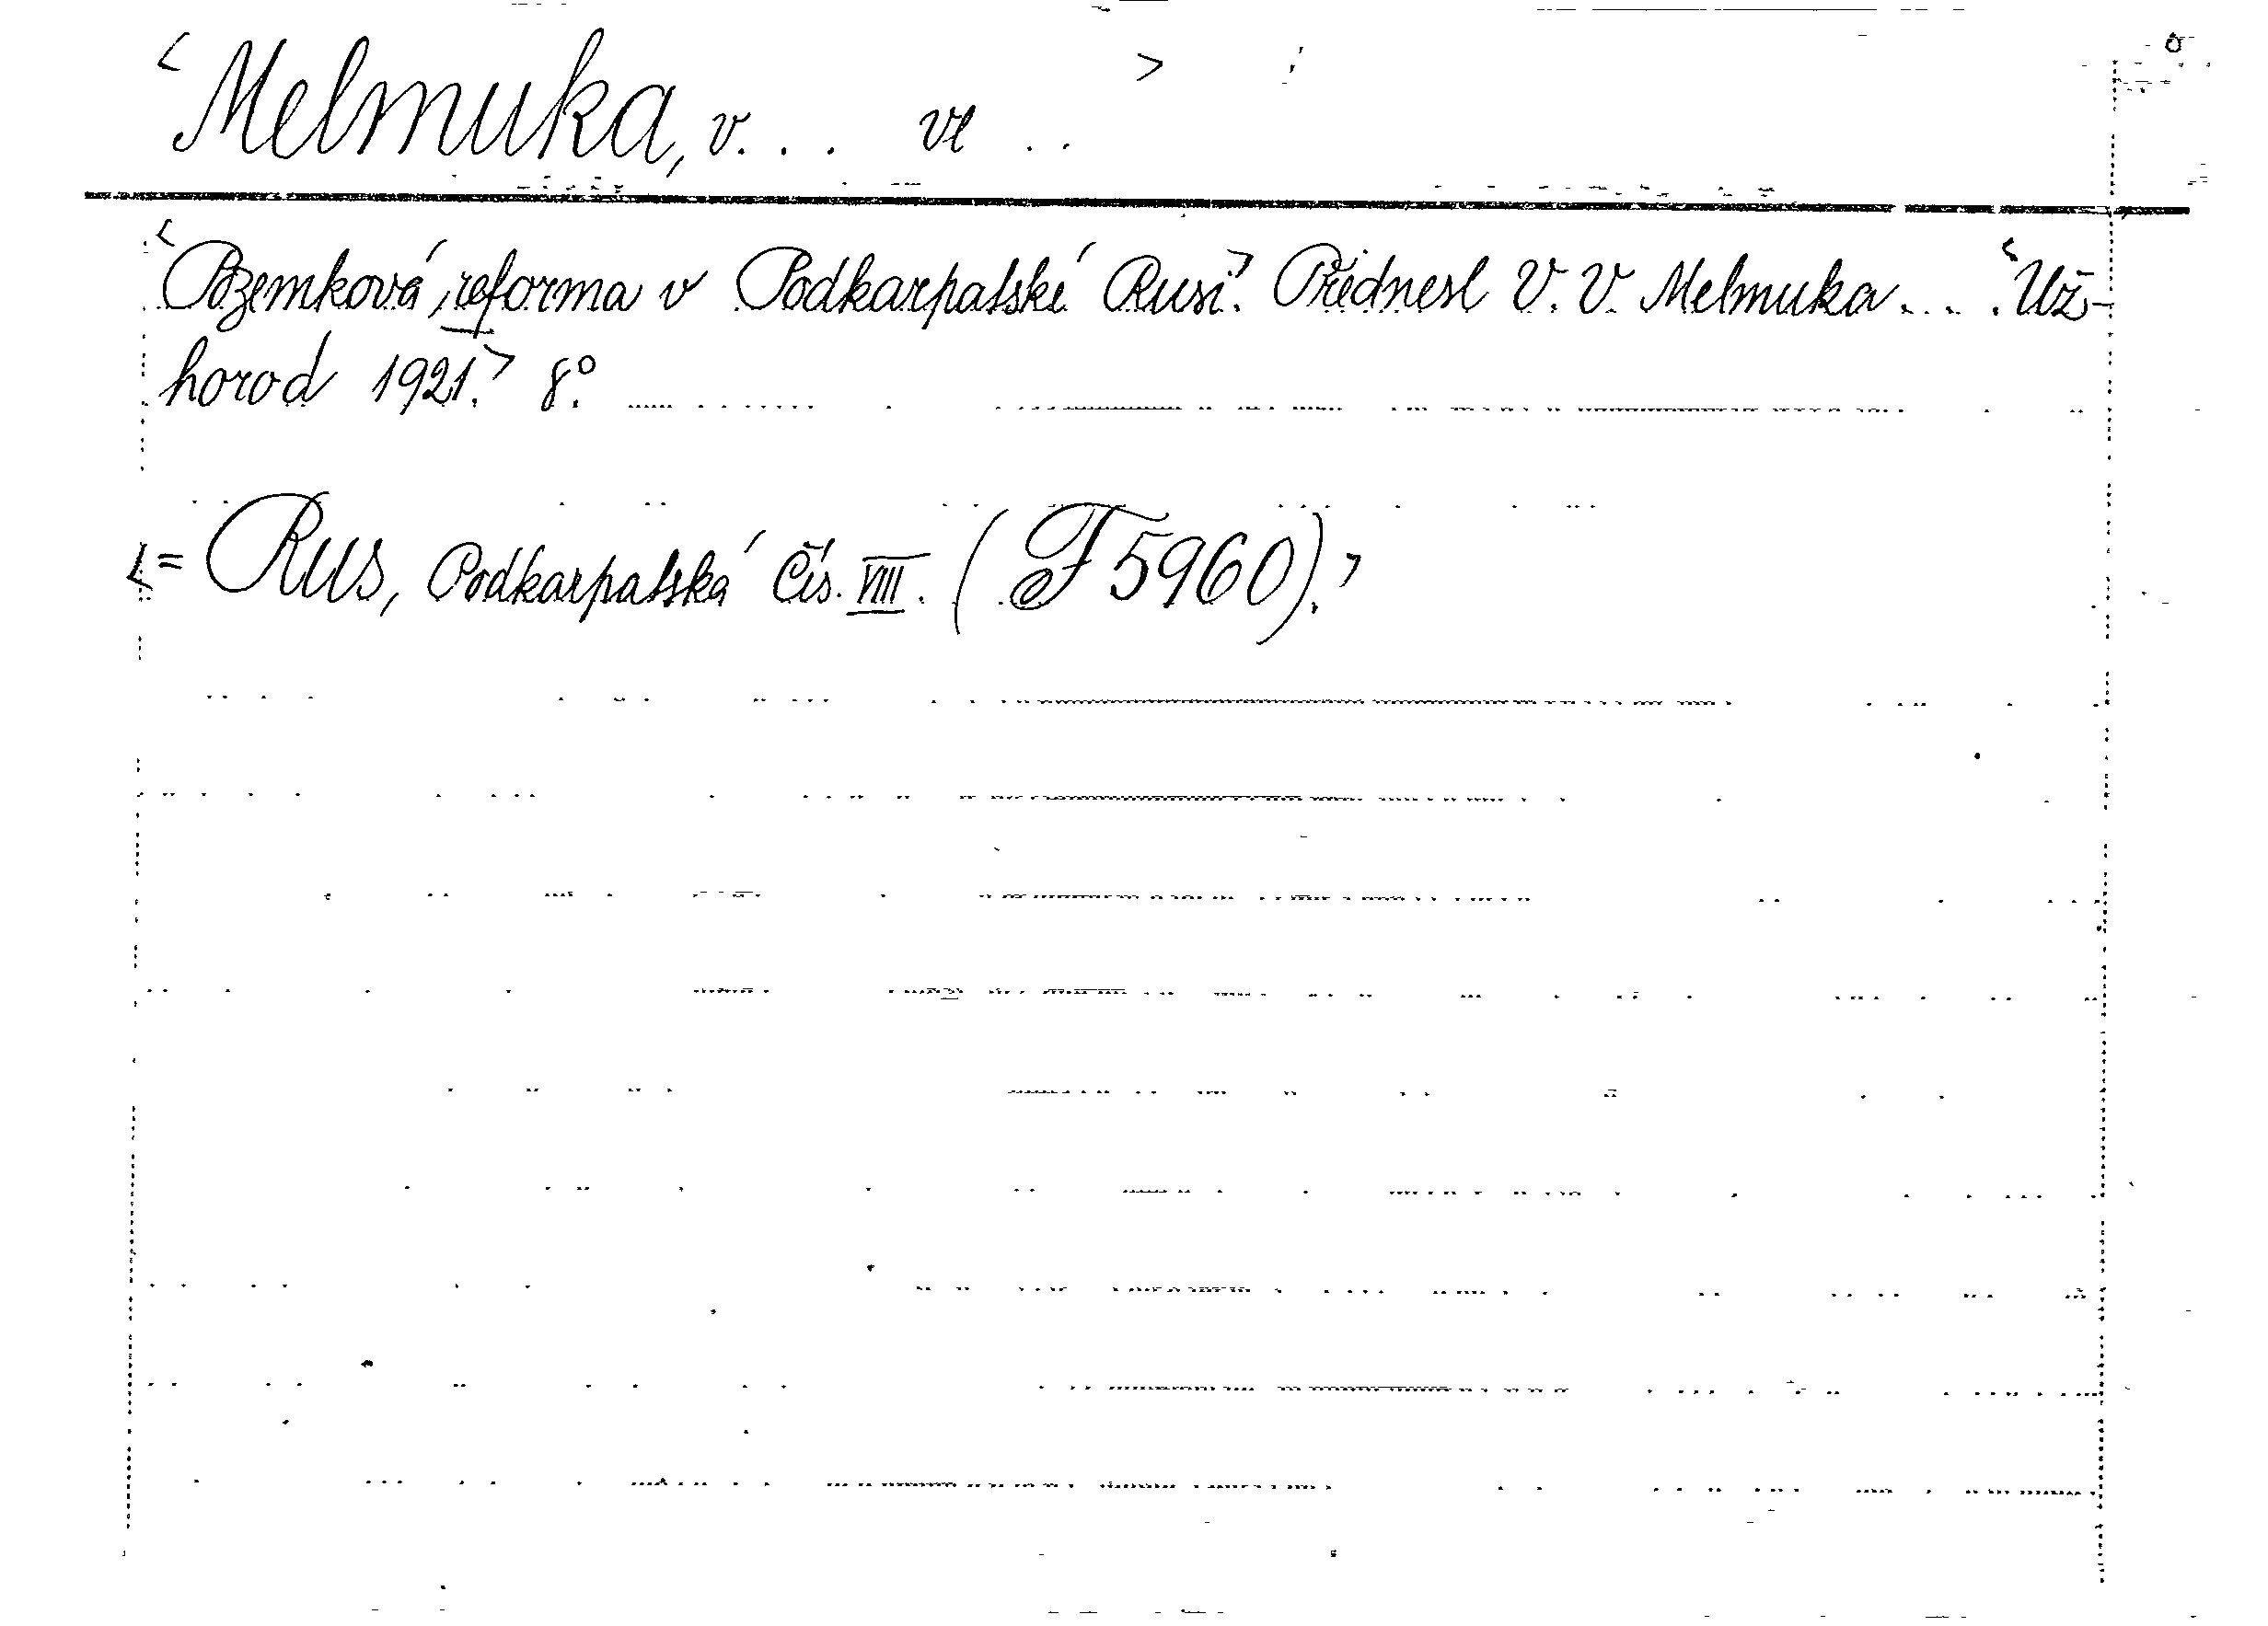 <Melmuka, V... Vl .. >
<Pozemková reforma v Podkarpatské Rusi.> Přednesl V. V. Melmuka.... <Už-
horod 1921.> 8°.
<= Rus, Podkarpatská Čís. VIII. (F 5960).>